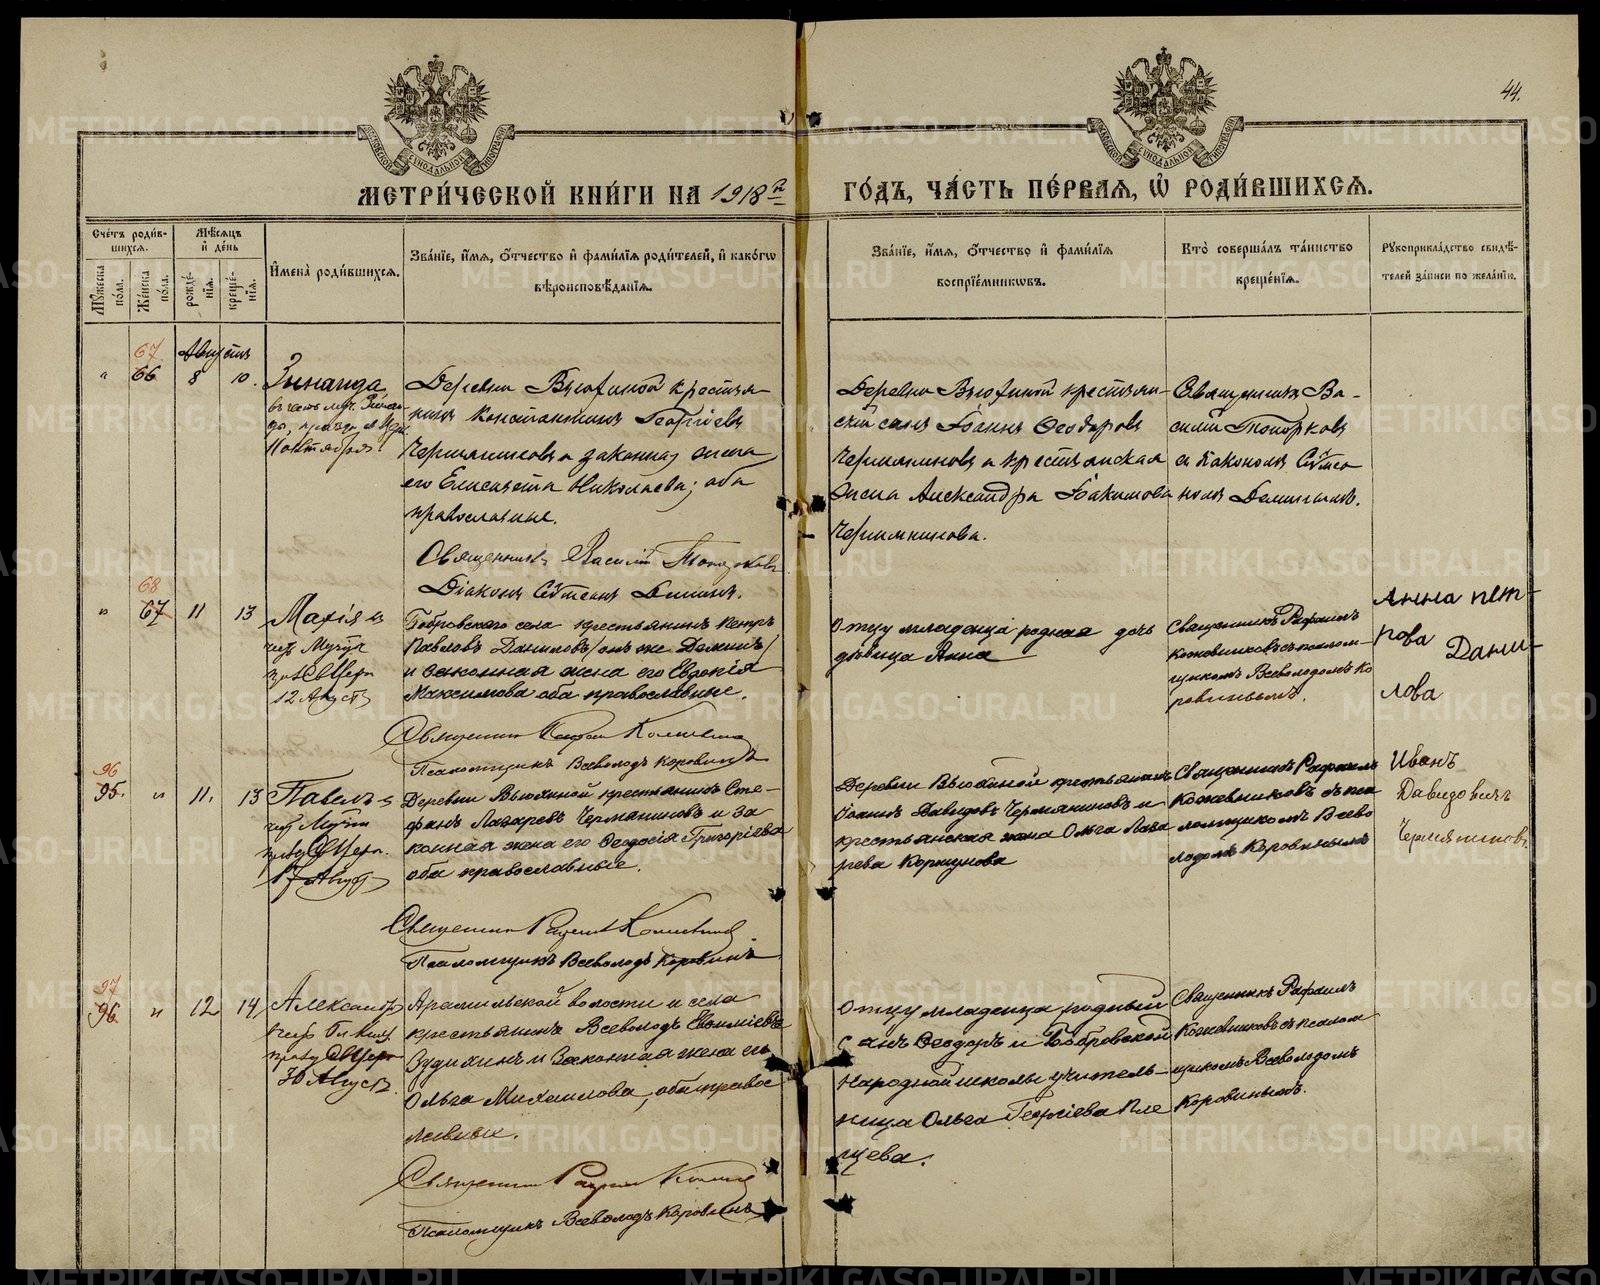 44.
МЕТРИ́ЧЕСКОЙ КНИ́ГИ НА 1918 г
ГО́ДЪ, ЧА́СТЬ ПЕ́РВАЯ, Ѡ҆ РОДИ́ВШИХСЯ.
Сче́тъ роди́в-
шихся.
Мѣ́сяцъ
и҆ де́нь
Мꙋ́жеска
по́ла.
Же́нска
по́ла.
рожде́-
нїя.
креще́-
нїя.
И҆мена̀ роди́вшихся.
Зва́нїе, и҆́мя, ѻ҆́тчество и҆ фами́лїя роди́телей, и҆ како́гѡ
вѣроисповѣ́данїя.
Зва́нїе, и҆́мя, ѻ҆́тчество и҆ фами́лїя
воспрїе́мникѡвъ.
Кто̀ соверша́лъ та́инство
креще́нїя.
Рꙋкоприкла́дство свидѣ́-
телей за́писи по жела́нїю.
67 Августъ
" 66 8 10.
Зинаида
Деревни Вьюхиной крестья-
нинъ Константинъ Георгіевъ
Чермяниновъ и законная жена
его Елисавета Николаева; оба
православные.
Священникъ Василій Топорковъ
Діаконъ Сѵмеонъ
Деревни Вьюхиной крестьян-
скій сынъ Іоаннъ Ѳеодоровъ
Чермяниновъ и крестьянская
жена Александра Іакимова
Чермянинова.
Священникъ Ва-
силій Топорковъ
съ діакономъ Сѵмео-
номъ
68
" 67 11 13
Марія въ
12 Августа
Бобровскаго села крестьянинъ Петръ
Павловъ Даниловъ /онъ же Деминъ/
и законная жена его Евдокія
Максимова оба православные.
Псаломщикъ Всеволодъ Коровинъ
Отцу младенца родная дочь
дѣвица Анна
Священникъ Рафаилъ
Кожевниковъ съ псалом-
щикомъ Всеволодомъ Ко
ровинымъ.
Анна Пет-
рова Дани-
лова
96
95. " 11. 13
Павелъ въ
17 Август
Деревни Вьюхиной крестьянинъ Сте-
фанъ Лазаревъ Чермяниновъ и за
конная жена его Ѳеодосія Григоріева
оба православные.
Священникъ Рафаилъ Кожевниковъ
Псаломщикъ Всеволодъ Коровинъ
Деревни Вьюхиной крестьянинъ
Іоаннъ Давидовъ Чермяниновъ и
крестьянская жена Ольга Лаза
рева Коршунова
Священникъ Рафаилъ
Кожевниковъ съ пса
ломщикомъ Всево
лодомъ Коровинымъ
Иванъ
Давидовичъ
Чермяниновъ
97
96. " 12 14
Александръ
30 Август
Арамильской волости и села
крестьянинъ Всеволодъ Евѳиміевъ
Зудихинъ и законная жена его
Ольга Михаилова, оба правос
лавные.
Священникъ Рафаилъ
Псаломщикъ Всеволодъ Коровинъ
Отцу младенца родный
Ѳеодоръ и Бобровской
народной школы учитель-
ница Ольга Георгіева Пле
щева.
Священникъ Рафаилъ
Кожевниковъ съ псалом
щикомъ Всеволодомъ
Коровинымъ.
METRIKI.GASO-URAL.RU